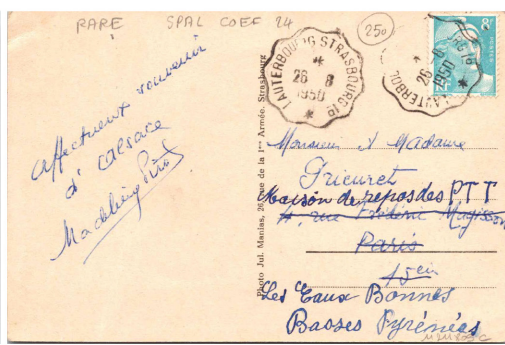 RARE SPAL COEF 24
250
LAUTERBOURG STRASBOURG 1B
26 - 8
1950
LAUTERBOU RG 1B
26 - 8
1950
8F
POSTES
Affectueux souvenir
d'Alsace
Madeleine
Photo Jul. Manias, 26 rue de la 1re Armée, Strasbourg
Monsieur & Madame
Grieuret
Maison de repos des PTT
rue Frédéric
Paris
15ein
Les Eaux Bonnes
Basses Pyrénées